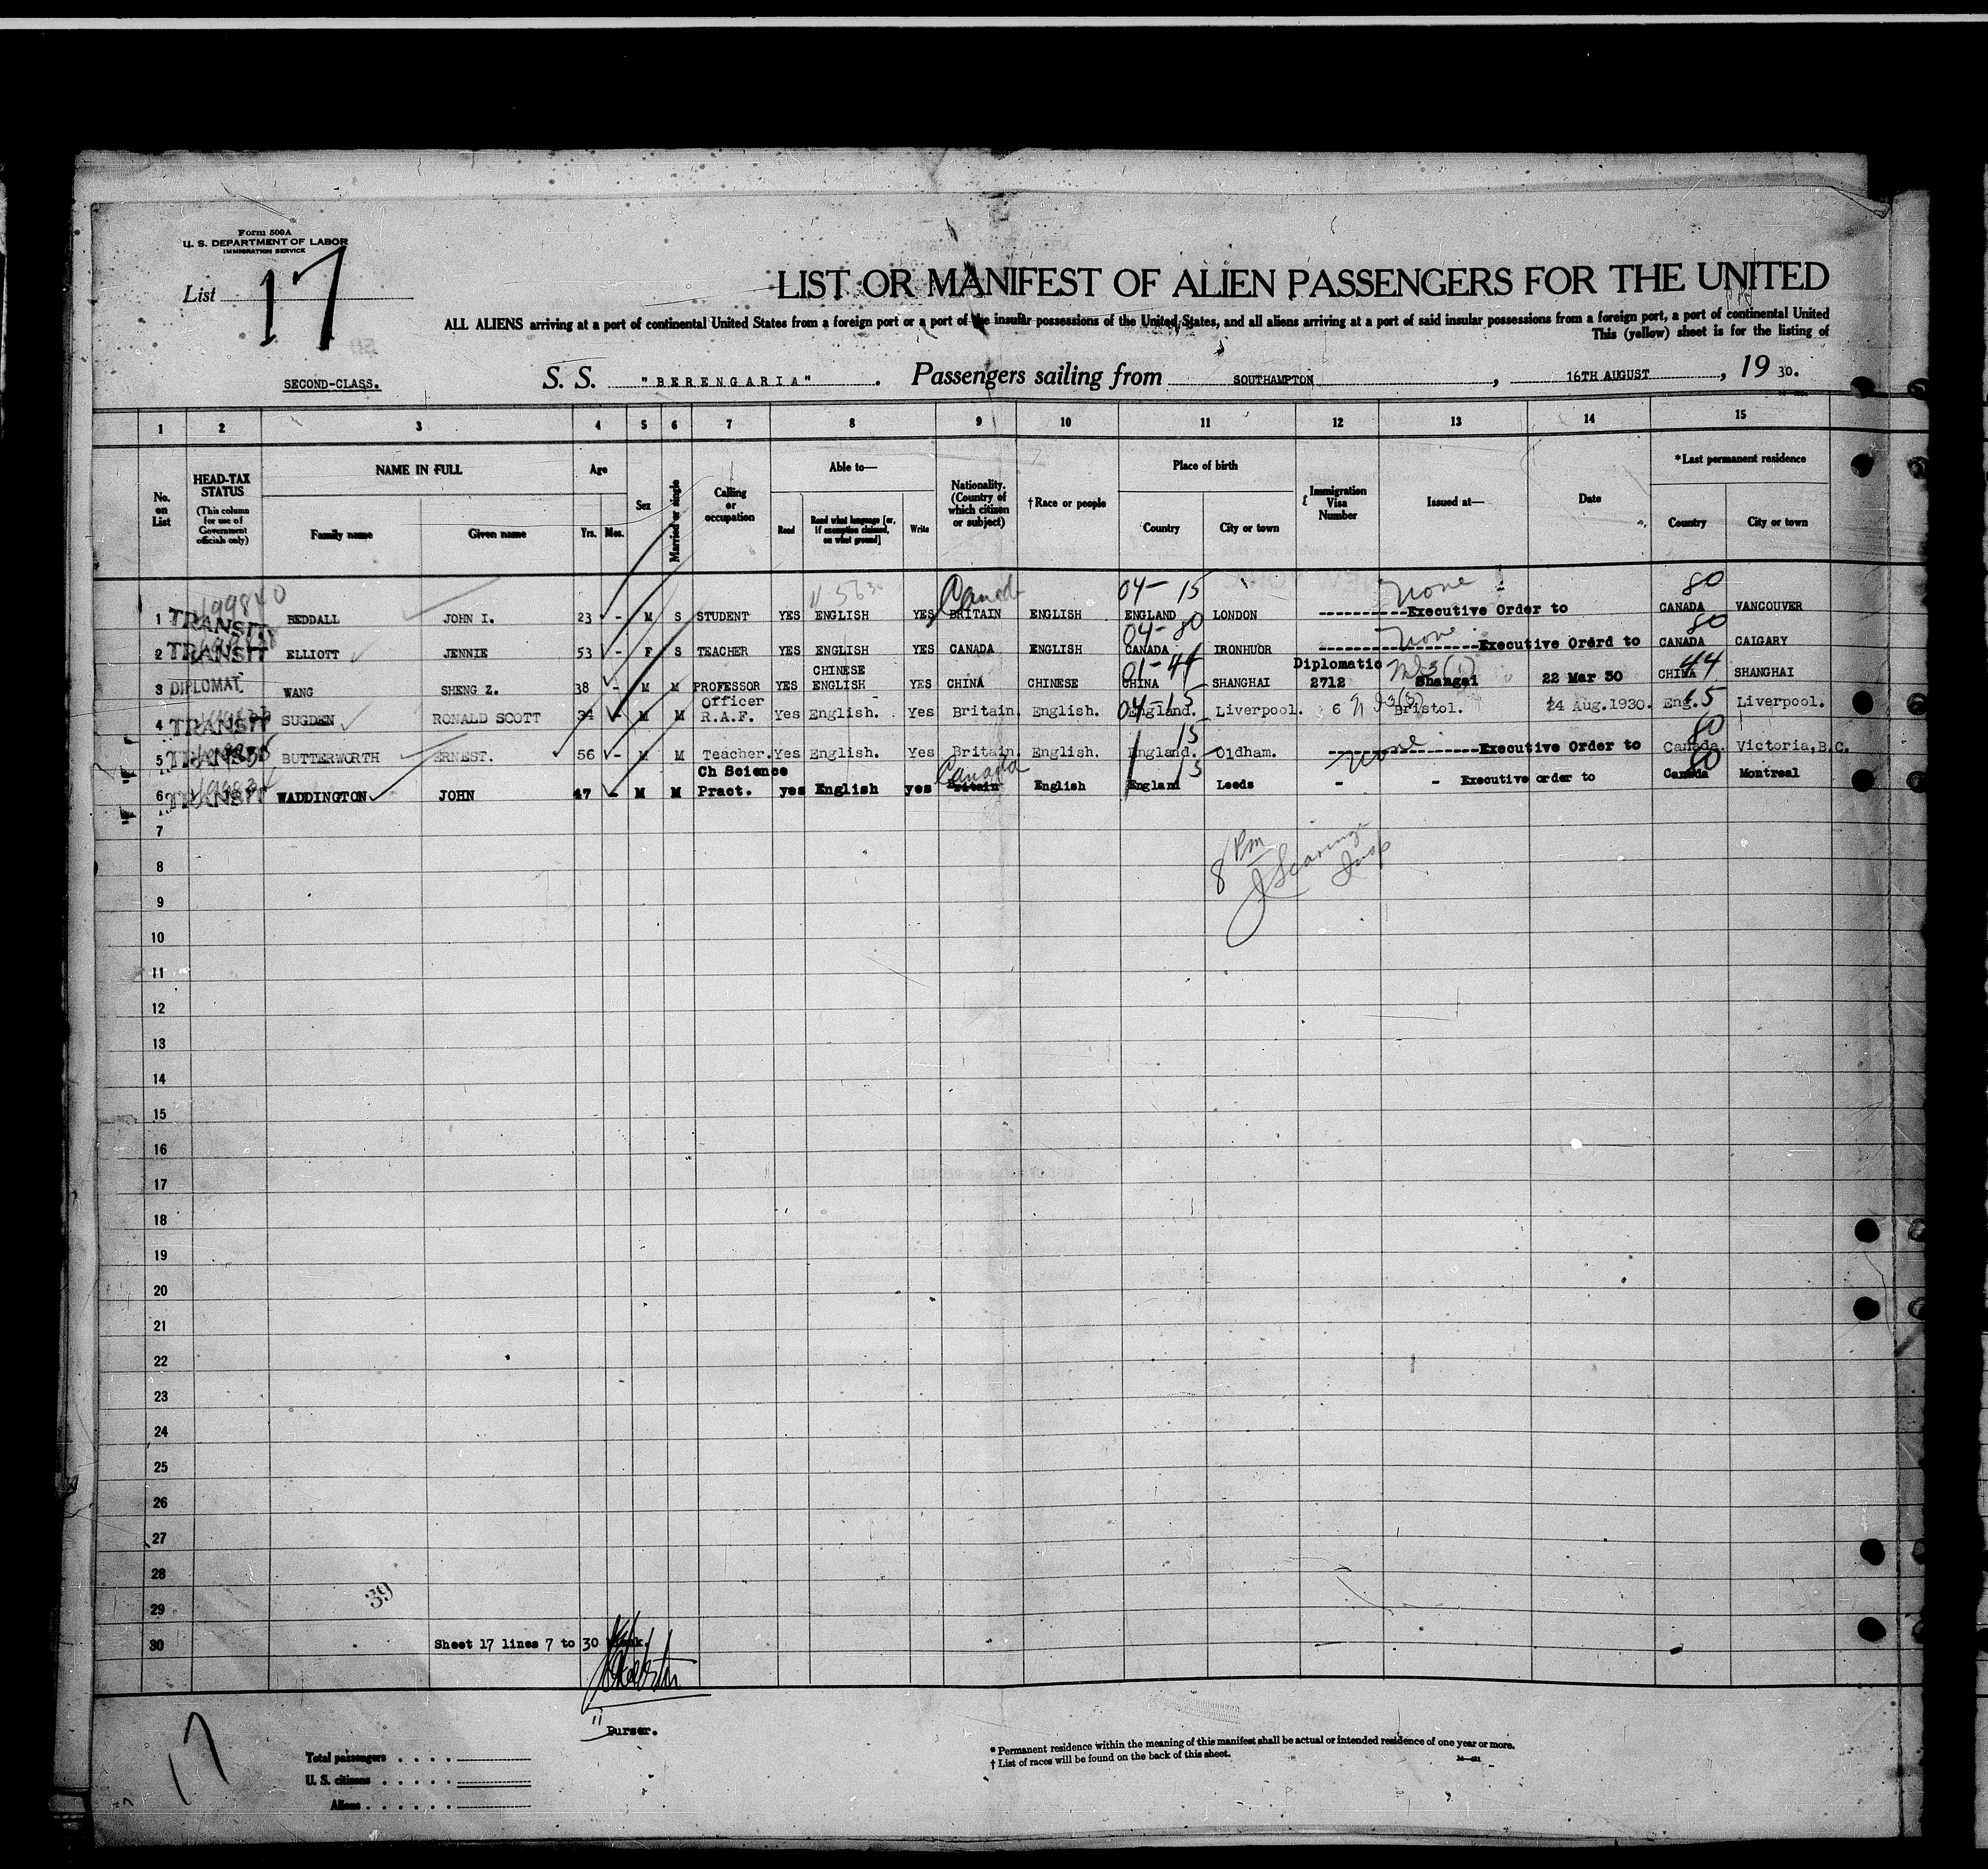 Form 500A
U. S. DEPARTMENT OF LABOR
IMMIGRATION SERVICE
List 17
LIST OR MANIFEST OF ALIEN PASSENGERS FOR THE UNITED
ALL ALIENS arriving at a port of continental United States from a foreign port or a port of the insular possessions of the United States, and all aliens arriving at a port of said insular possessions from a foreign port, a port of continental United
This (yellow) sheet is for the listing of
SECOND-CLASS. S. S. "BERENGARIA" . Passengers sailing from SOUTHAMPTON , 16TH AUGUST , 19 30.
1 2 3 4 5 6 7 8 9 10 11 12 13 14 15
No. on List
HEAD-TAX STATUS (This column for use of Government officials only)
NAME IN FULL
Family name Given name
Age
Yrs. Mos.
Sex
Married or single
Calling or occupation
Able to—
Read Read what language [or, if exemption claimed, on what ground] Write
Nationality. (Country of which citizen or subject)
†Race or people
Place of birth
Country City or town
Immigration Visa Number
Issued at—
Date
*Last permanent residence
Country City or town
Canada 04- 15 None 80
1 TRANSIT BEDDALL JOHN I. 23 - M S STUDENT YES ENGLISH YES BRITAIN ENGLISH ENGLAND LONDON ----------Executive Order to CANADA VANCOUVER
04- 80 None 80
2 TRANSIT ELLIOTT JENNIE 53 - F S TEACHER YES ENGLISH YES CANADA ENGLISH CANADA IRONHUOR ------------------Executive Orerd to CANADA CAIGARY
CHINESE 01-44 Diplomatic 44
3 DIPLOMAT WANG SHENG Z. 38 - M M PROFESSOR YES ENGLISH YES CHINA CHINESE CHINA SHANGHAI 2712 Shangai 22 Mar 30 CHINA SHANGHAI
Officer 04-15
4 TRANSIT SUGDEN RONALD SCOTT 34 - M M R.A.F. Yes English. Yes Britain. English. England. Liverpool. 6 Bristol. 14 Aug.1930. Eng. 15 Liverpool.
15 None 80
5 TRANSIT BUTTERWORTH ERNEST. 56 - M M Teacher. Yes English. Yes Britain. English. England. Oldham. ------------------Executive Order to Canada. Victoria,B.C.
Ch Science Canada 15 80
6 TRANSIT WADDINGTON JOHN 47 - M M Pract. yes English yes Britain English England Leeds - - Executive order to Canada Montreal
7
8 8 Pm
9
10
11
12
13
14
15
16
17
18
19
20
21
22
23
24
25
26
27
28
29 39
30 Sheet 17 lines 7 to 30
Purser.
17
Total passengers
U. S. citizens
Aliens
* Permanent residence within the meaning of this manifest shall be actual or intended residence of one year or more.
† List of races will be found on the back of this sheet.